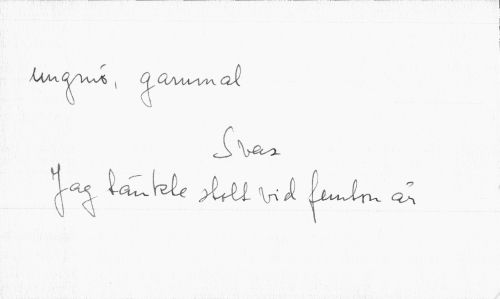 ungmö, gammal
Svar
Jag tänkte stolt vid femton år